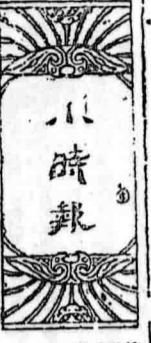 小時報